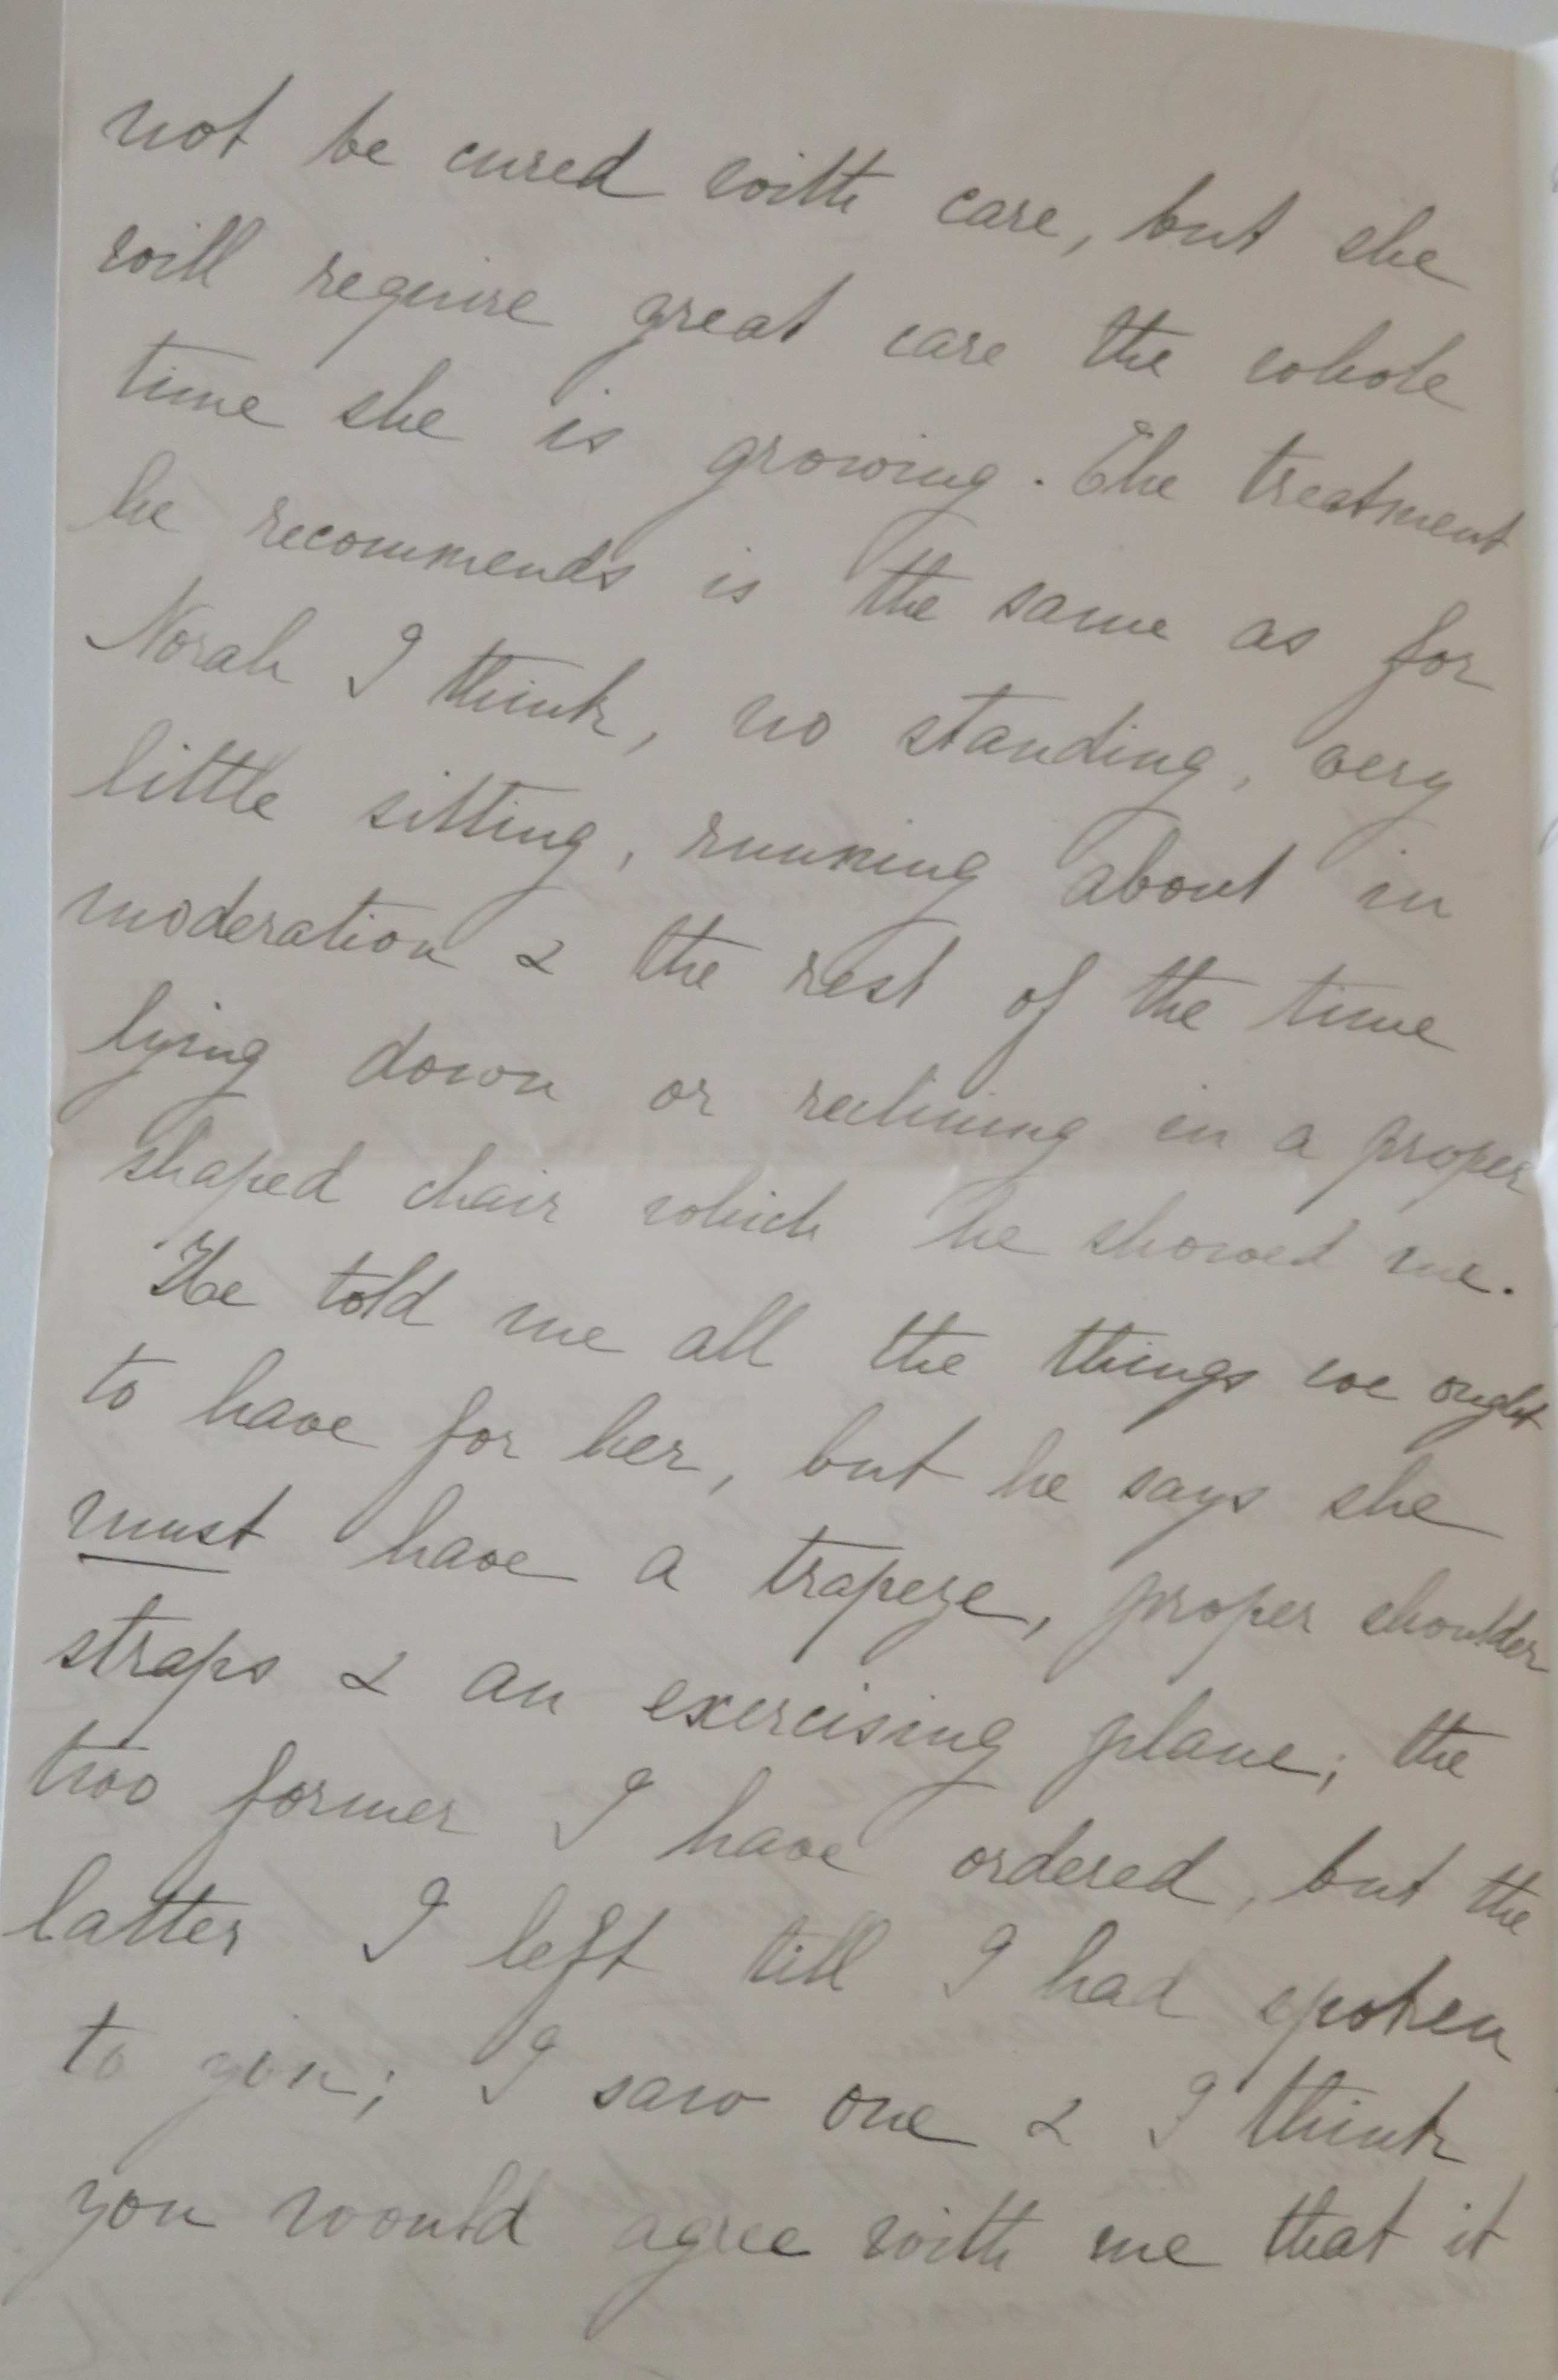 not be cured with care, but she
will require great care the whole
time she is growing. The treatment
he recommends is the same as for
Norah I think, no standing, very
little sitting, running about in
moderation & the rest of the time
lying down or reclining in a proper
shaped chair which he showed me.
He told me all the things we ought
to have for her, but he says she
must have a trapeze, proper shoulder
straps & an exercising plane; the
two former I have ordered, but the
latter I left till I had spoken
to you; I saw one & I think
you would agree with me that it